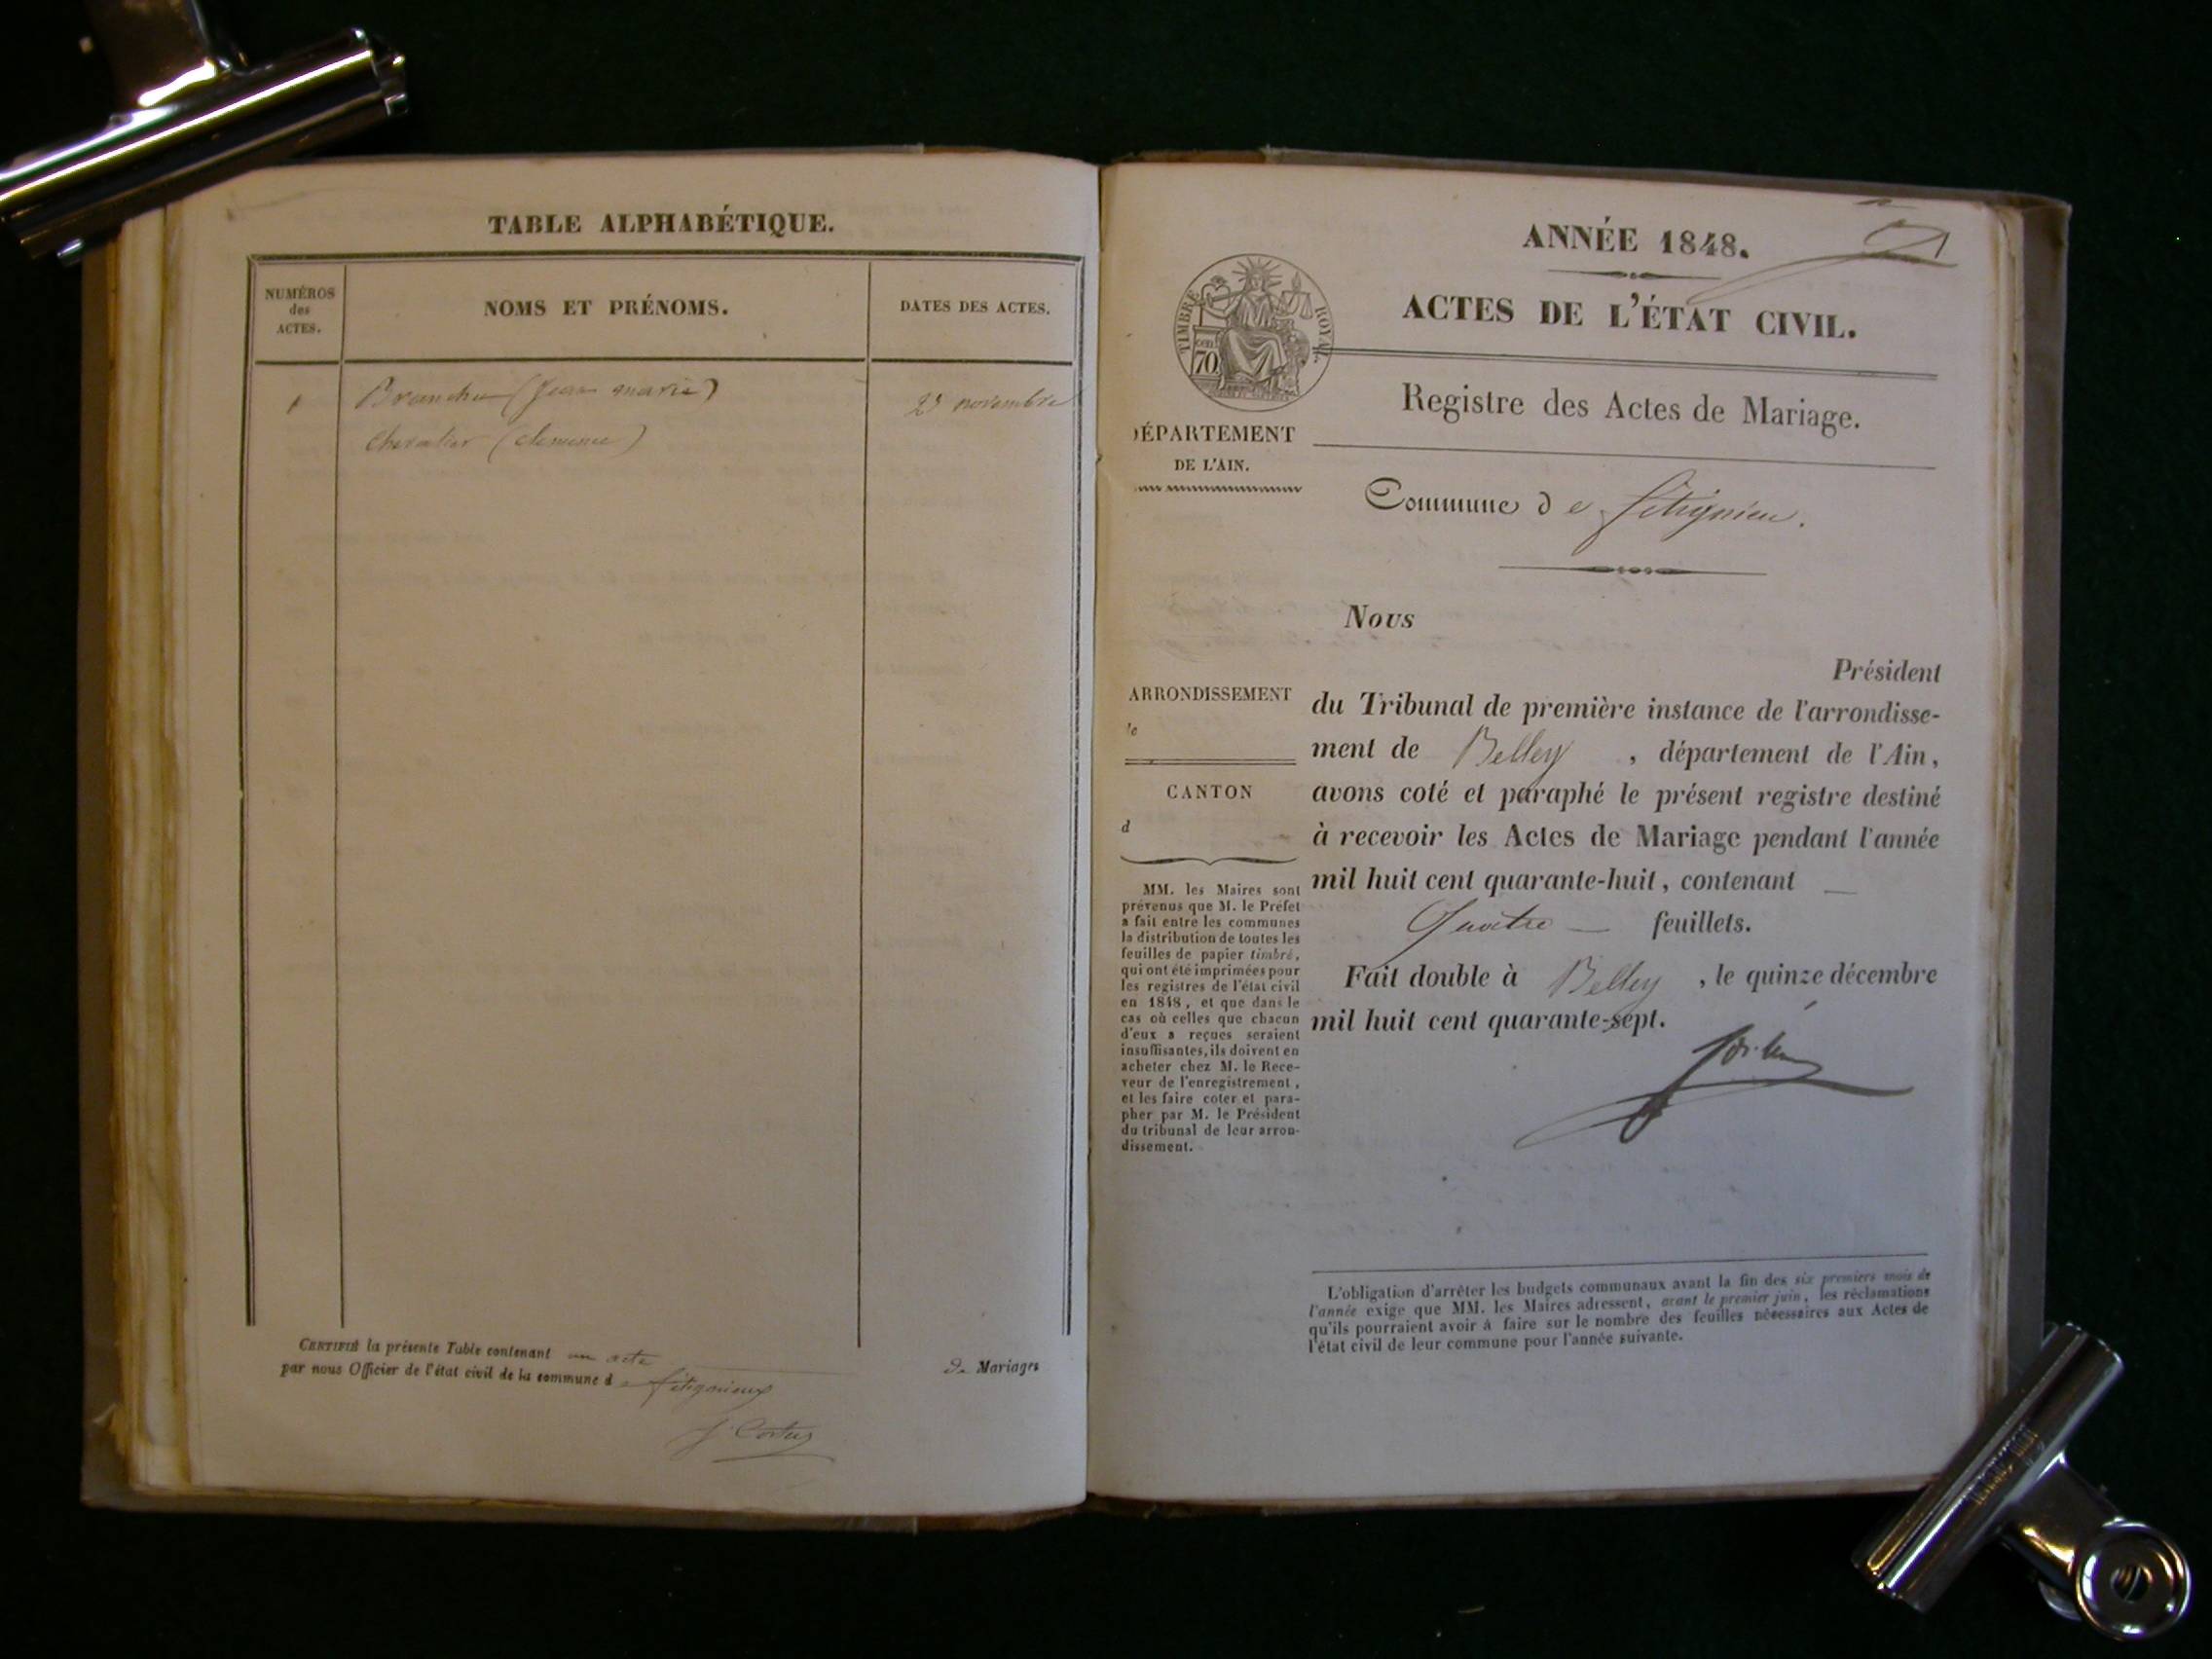 TABLE ALPHABÉTIQUE.
NUMÉROS
des
ACTES.
NOMS ET PRÉNOMS.
DATES DES ACTES.
1
(jean marie)
novembre
chevalier (clemence)
CERTIFIÉ la présente Table contenant un acte
de Mariages
par nous Officier de l'état civil de la commune d
ANNÉE 1848.
ACTES DE L'ÉTAT CIVIL.
TIMBRE ROYAL
70
Registre des Actes de Mariage.
DÉPARTEMENT
DE L'AIN.
Commune de
Nous
Président
ARRONDISSEMENT
du Tribunal de première instance de l'arrondisse-
ment de Belley, département de l'Ain,
CANTON
d
avons coté et paraphé le présent registre destiné
à recevoir les Actes de Mariage pendant l'année
mil huit cent quarante-huit, contenant
Quatre feuillets.
Fait double à Belley, le quinze décembre
mil huit cent quarante-sept.
MM. les Maires sont
prévenus que M. le Préfet
a fait entre les communes
la distribution de toutes les
feuilles de papier timbré,
qui ont été imprimées pour
les registres de l'état civil
en 1848, et que dans le
cas où celles que chacun
d'eux a reçues seraient
insuffisantes, ils doivent en
acheter chez M. le Rece-
veur de l'enregistrement,
et les faire coter et para-
pher par M. le Président
du tribunal de leur arron-
dissement.
L'obligation d'arrêter les budgets communaux avant la fin des six premiers mois de
l'année exige que MM. les Maires adressent, avant le premier juin, les réclamations
qu'ils pourraient avoir à faire sur le nombre des feuilles nécessaires aux Actes de
l'état civil de leur commune pour l'année suivante.